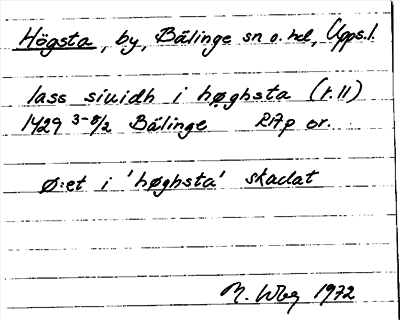 Högsta, by, Bälinge sn o. hd, Upps. l.
lass siuidh i høghsta (r. 11)
1429 3-8/2 Bälinge RAp or.
Ø:et i 'høghsta' skadat
M. Wbg 1972